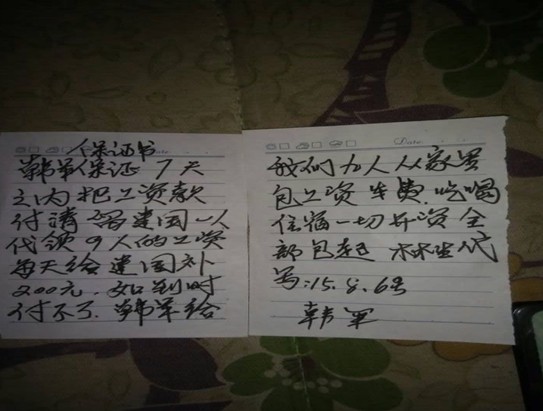 保证书
Date
韩军保证 7天
之内把工资款
付清 建国一人
代领9人的工资
每天给建国补
200元. 如到时
付不了. 韩军给
Date
我们九人从家里
包工资车费.吃喝
住宿一切开资全
部包起 代
写:15.8.6号
韩军